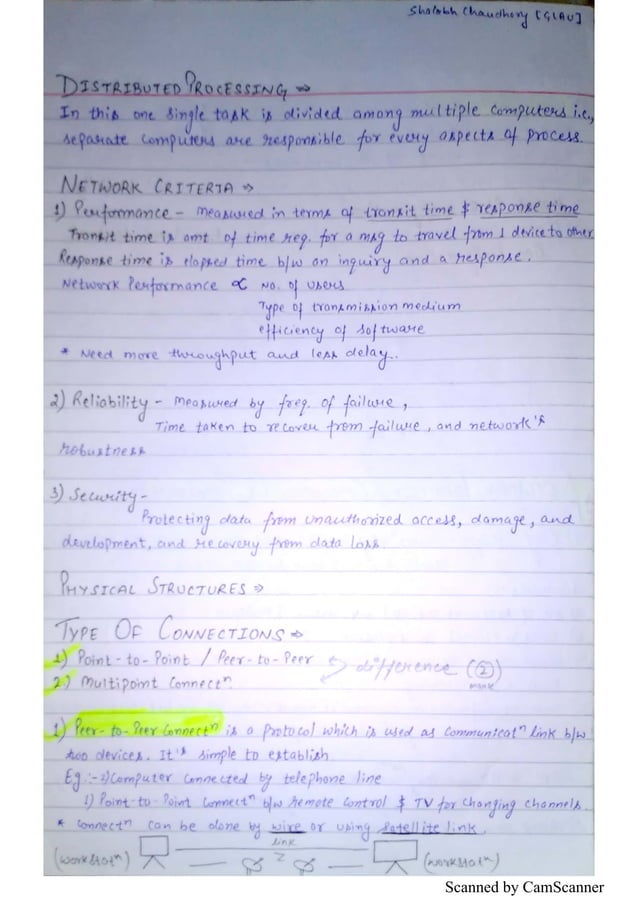 Shalabh Chaudhary [GLAU]
DISTRIBUTED PROCESSING ⇒
In this one single task is divided among multiple computers i.e.,
separate computers are responsible for every aspects of process.
NETWORK CRITERIA ⇒
1) Performance - measured in terms of transit time & response time
Transit time is amt. of time req. for a msg to travel from 1 device to other
Response time is elapsed time b/w an inquiry and a response.
Network Performance ∝ No. of users
Type of transmission medium
efficiency of software
* Need more throughput and less delay.
2) Reliability - measured by freq. of failure,
Time taken to recover from failure, and network's
robustness
3) Security -
Protecting data from unauthorized access, damage, and
development, and recovery from data loss.
PHYSICAL STRUCTURES ⇒
TYPE OF CONNECTIONS ⇒
1) Point-to-Point / Peer-to-Peer
difference (2)
2) Multipoint Connectⁿ
mark
1) Peer-to-Peer Connectⁿ is a protocol which is used as communicatⁿ link b/w
two devices. It's simple to establish
Eg:- Computer connected by telephone line
1) Point-to-Point Connectⁿ b/w remote control & TV for changing channels.
* connectⁿ can be done by wire or using satellite link.
link
(workstatⁿ) (workstatⁿ)
Scanned by CamScanner